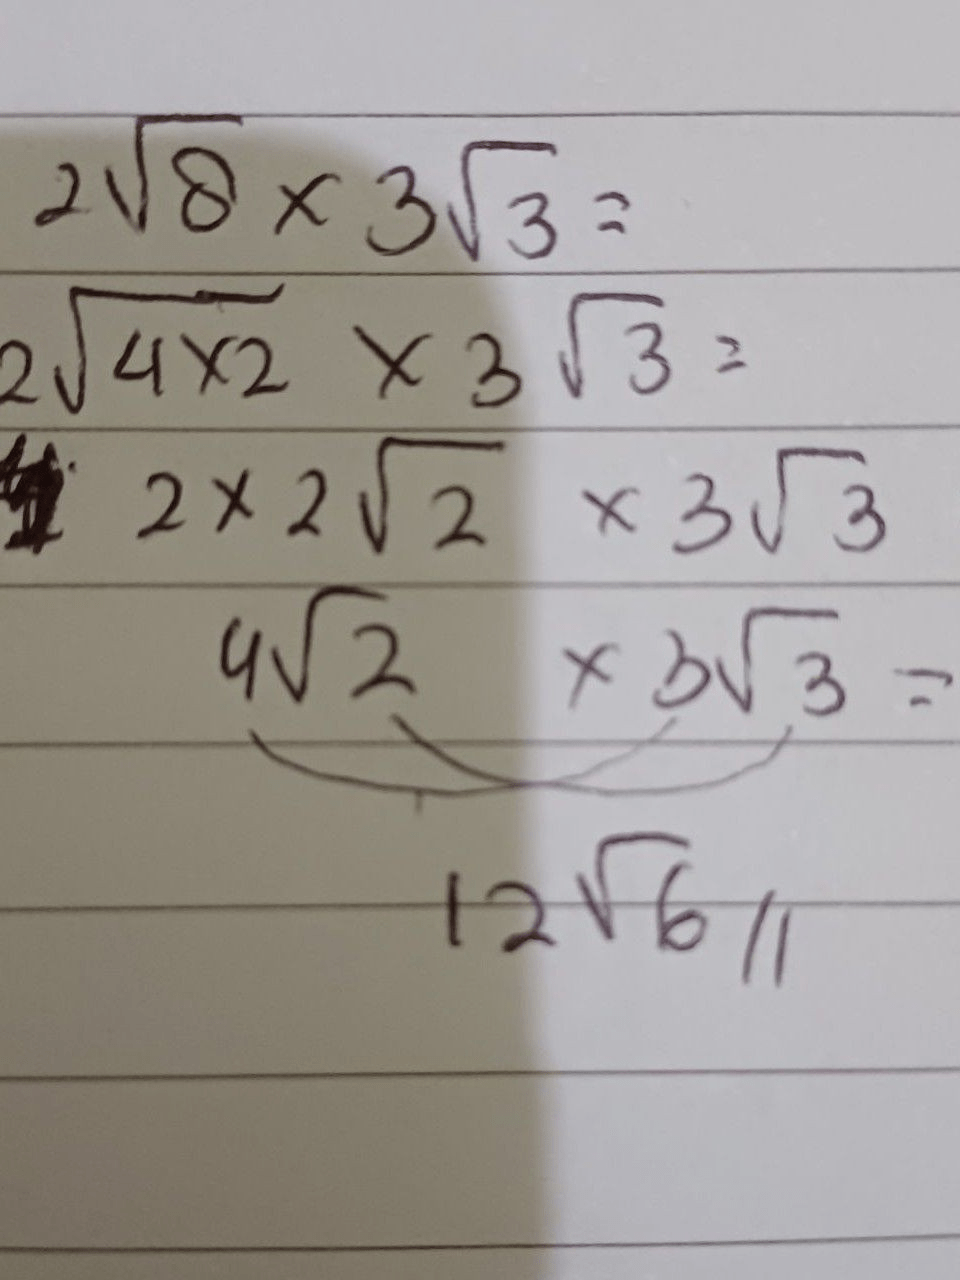 2√8 × 3√3 =
2√4×2 × 3√3 =
2 × 2√2 × 3√3
4√2 × 3√3 =
12√6 //